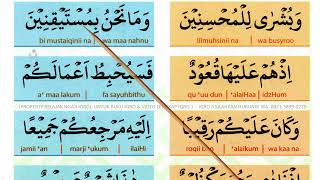 وَبُشْرَى لِلْمُحْسِنِيْنَ
lilmuhsinii na wa busyroo
وَمَا نَحْنُ بِمُسْتَيْقِنِيْنَ
bi mustaiqinii na wa maa nahnu
اِذْهُمْ عَلَيْهَا قُعُوْدٌ
qu 'uu dun 'alaiHaa idzHum
فَسَيُحْبِطُ اَعْمَالَكُمْ
a' maa lakum fa sayuhbithu
وَكَانَ عَلَيْكُمْ رَقِيْبًا
roqii ban 'alaikum wa kaa na
اِلَيْهِ مَرْجِعُكُمْ جَمِيْعًا
jamii 'an marji 'ukum ilaiHi